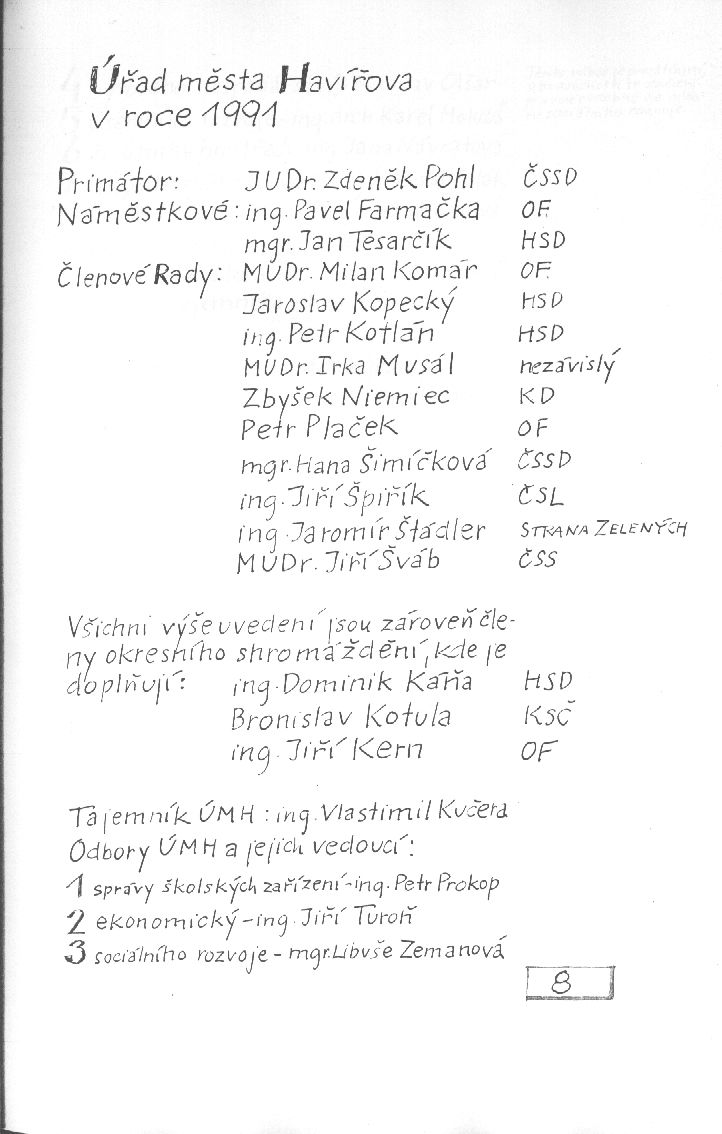 Úřad města Havířova
v roce 1991
Primátor: JUDr. Zdeněk Pohl ČSSD
Náměstkové: ing. Pavel Farmačka OF
mgr. Jan Tesarčík HSD
Členové Rady: MUDr. Milan Komár OF
Jaroslav Kopecký HSD
ing. Petr Kotlán HSD
MUDr. Irka Musál nezávislý
Zbyšek Niemiec KD
Petr Plaček OF
mgr. Hana Šimíčková ČSSD
ing. Jiří Špiřík ČSL
ing. Jaromír Štádler STRANA ZELENÝCH
MUDr. Jiří Šváb ČSS
Všichni výše uvedení jsou zároveň čle-
ny okresního shromáždění, kde je
doplňují: ing. Dominik Káňa HSD
Bronislav Kotula KSČ
ing. Jiří Kern OF
Tajemník ÚMH: ing. Vlastimil Kučera
Odbory ÚMH a jejich vedoucí:
1 správy školských zařízení - ing. Petr Prokop
2 ekonomický - ing. Jiří Turoň
3 sociálního rozvoje - mgr. Libuše Zemanová
8